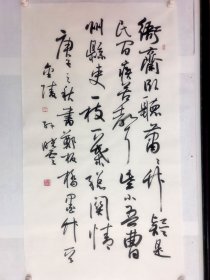 衙齋臥聽蕭々竹疑是
民間疾苦聲些小吾曹
州縣吏一枝一葉總關情
之秋書鄭板橋墨竹
金陵